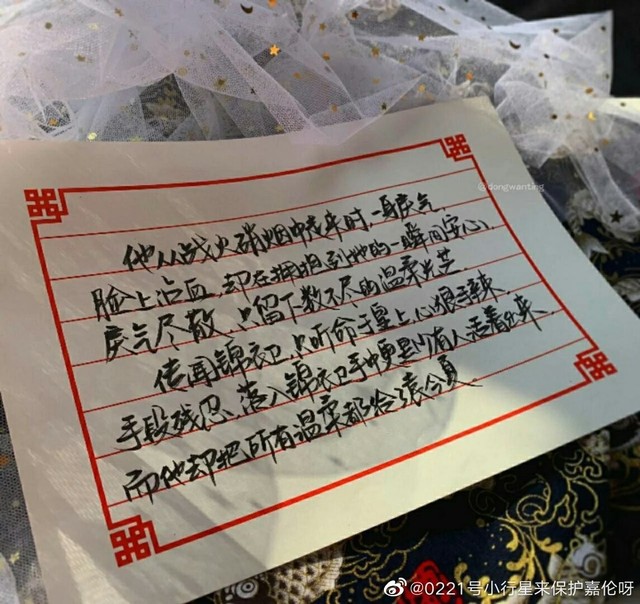 @dongwanting
他从战火硝烟中走来时,一身戾气
脸上沾血,却在拥抱到她的一瞬间安心,
戾气尽散,只留下数不尽的温柔光芒.
传闻锦衣卫,只听命于皇上,心狠手辣,
手段残忍,落入锦衣卫手中更是少有人走着出来,
而他却把所有温柔都给袁今夏
@0221号小行星来保护嘉伦呀